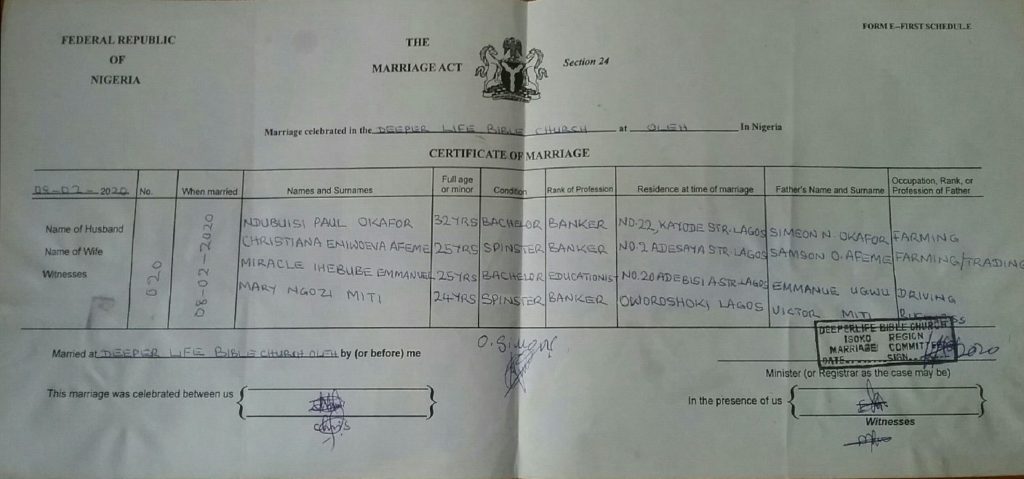 FORM E–FIRST SCHEDULE
FEDERAL REPUBLIC
OF
NIGERIA
THE
MARRIAGE ACT
Section 24
Marriage celebrated in the DEEPER LIFE BIBLE CHURCH at OLEH In Nigeria
CERTIFICATE OF MARRIAGE
08-02-2020 No. When married Names and Surnames Full age or minor Condition Rank of Profession Residence at time of marriage Father's Name and Surname Occupation, Rank, or Profession of Father
020 08-02-2020
Name of Husband NDUBUISI PAUL OKAFOR 32YRS BACHELOR BANKER NO.22, KAYODE STR. LAGOS SIMEON N. OKAFOR FARMING
Name of Wife CHRISTIANA ENIWOEVA AFEME 25YRS SPINSTER BANKER NO.2 ADESAYA STR. LAGOS SAMSON O. AFEME FARMING/TRADING
Witnesses MIRACLE IHEBUBE EMMANUEL 25YRS BACHELOR EDUCATIONIST NO.20 ADEBISI A STR. LAGOS EMMANUE UGWU DRIVING
MARY NGOZI MITI 24YRS SPINSTER BANKER OWOROSHOKI LAGOS VICTOR MITI BUSINESS
Married at DEEPER LIFE BIBLE CHURCH OLEH by (or before) me
DEEPERLIFE BIBLE CHURCH
ISOKO REGION
MARRIAGE COMMITTEE
DATE SIGN
Minister (or Registrar as the case may be)
This marriage was celebrated between us
In the presence of us
Witnesses